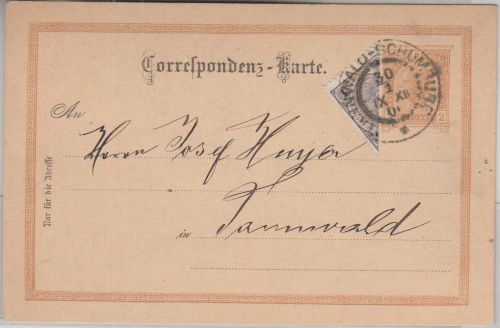 Correspondenz-Karte.
TANNWALD-SCHUMBURG
30
1
IX XII
2
An
Herrn Josef
in Tannwald
Nur für die Adresse